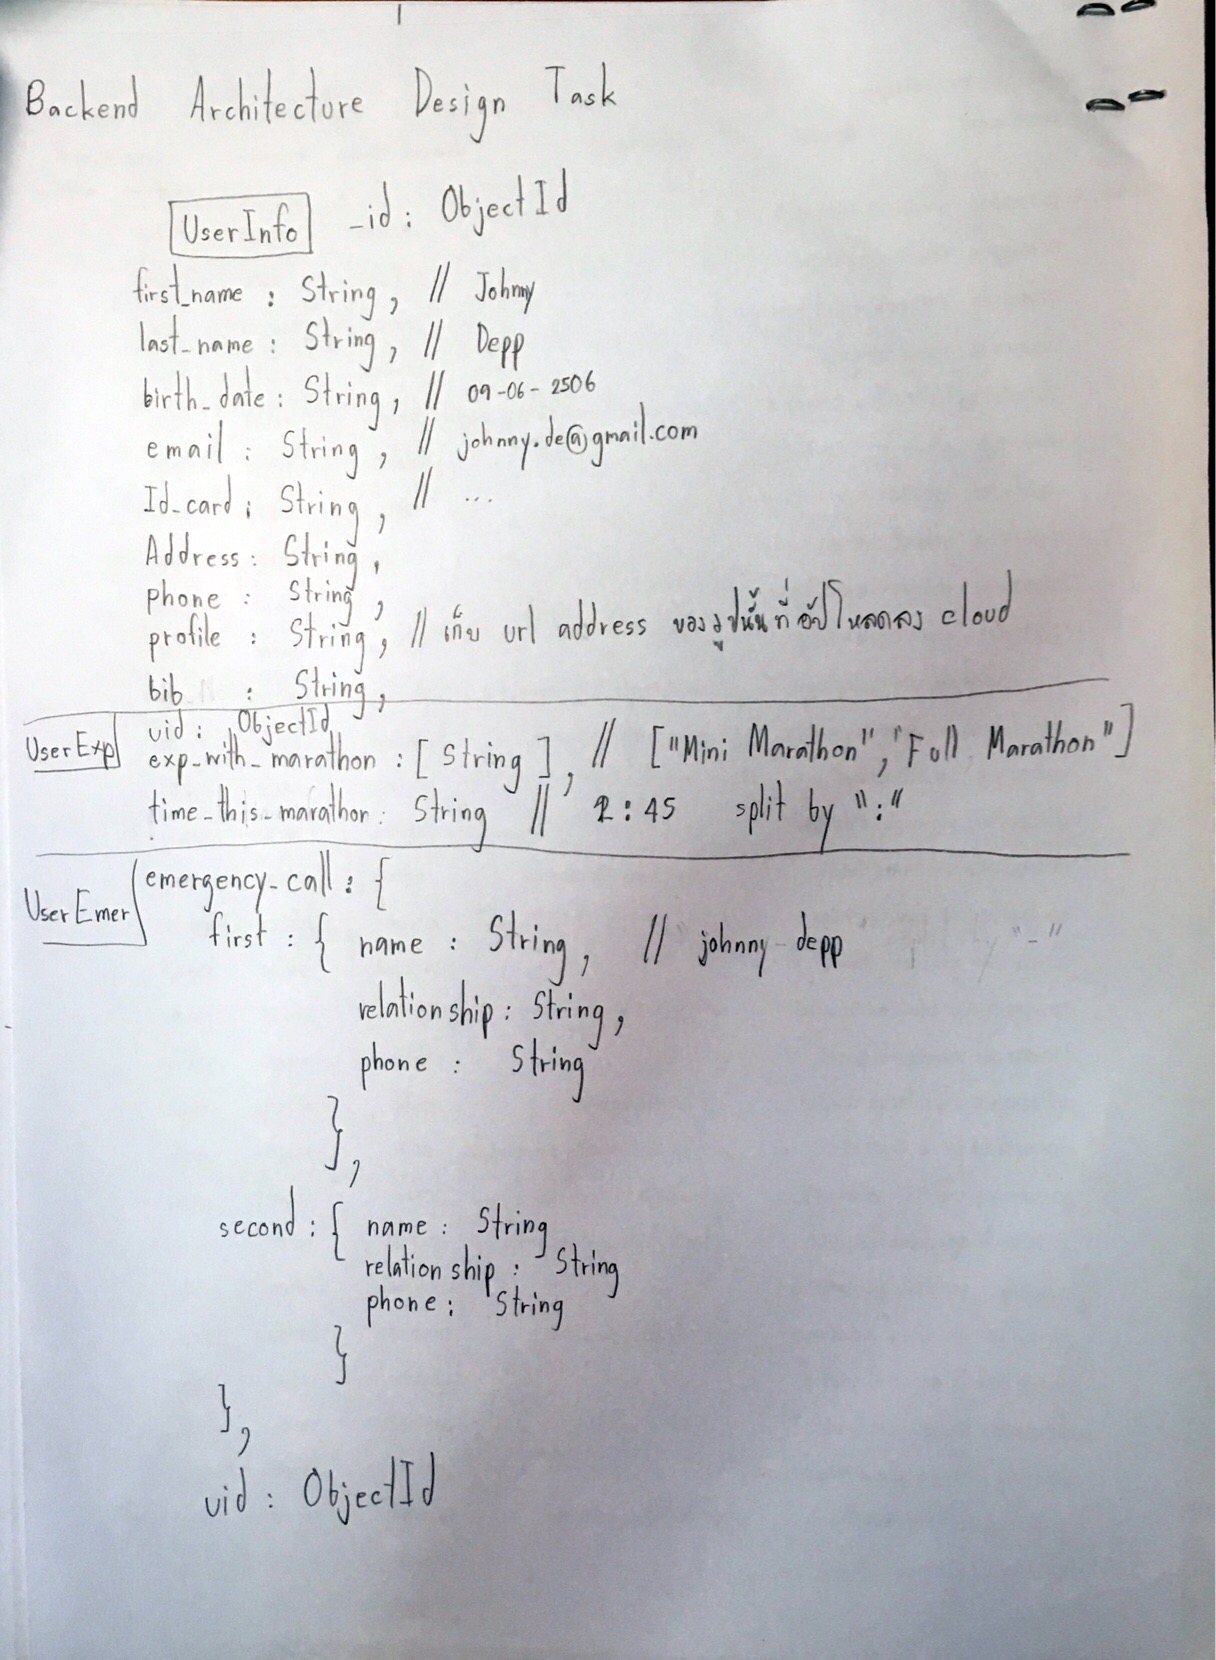 Backend Architecture Design Task
UserInfo _id : ObjectId
first_name : String, // Johnny
last_name : String, // Depp
birth_date : String, // 09-06-2506
email : String, // johnny.de@gmail.com
Id_card : String, // ...
Address : String,
phone : String,
profile : String, // เก็บ url address ของรูปนั้นที่อัปโหลดลง cloud
bib : String,
UserExp uid : ObjectId
exp_with_marathon : [ String ], // ["Mini Marathon", "Full Marathon"]
time_this_marathon : String // 2:45 split by ":"
UserEmer emergency_call : {
first : { name : String, // johnny depp
relationship : String,
phone : String
},
second : { name : String
relationship : String
phone : String
}
},
uid : ObjectId